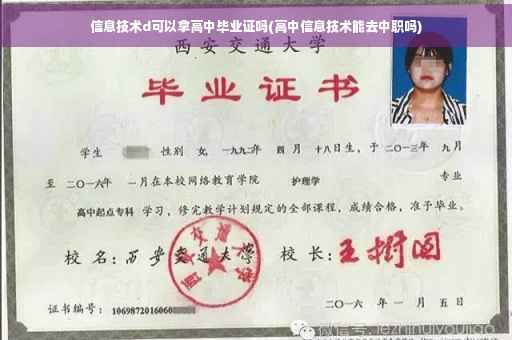 信息技术d可以拿高中毕业证吗(高中信息技术能去中职吗)
西安交通大学
毕业证书
学生 性别 女, 一九九二年 四月 十八日生, 于二〇一三年 九月
至 二〇一六年 一月在本校网络教育学院 护理学 专业
高中起点专科 学习, 修完教学计划规定的全部课程, 成绩合格, 准予毕业。
校 名: 西安交通大学 校 长: 王树国
西安交通大学
证书编号: 1069872016060
二〇一六 年 一 月 五 日
微信号: jezhihuiyoujiao